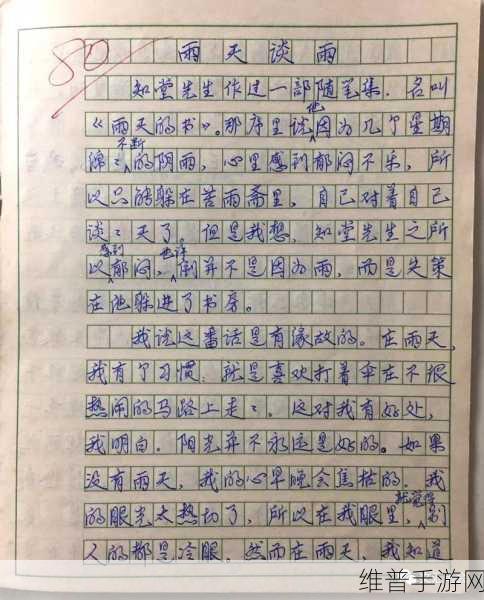 80
雨天谈雨
知堂先生作过一部随笔集，名叫
《雨天的书》。那序里说他因为几个星期
绵绵不断的阴雨，心里感到郁闷不乐，所
以只能躲在苦雨斋里，自己对着自己
谈谈天了，但是我想，知堂先生之所
以感到郁闷，也许倒并不是因为雨，而是失策
在他躲进了书房。
我说这番话是有缘故的。在雨天，
我有个习惯：就是喜欢打着伞在不很
热闹的马路上走走。这对我有好处，
我明白。阳光并不永远是好的。如果
没有雨天，我的心早晚会焦枯的。我
的眼光太热切了，所以在我眼里，就觉得别
人的都是冷眼。然而在雨天，我知道
维普手游网
www.vipgs.net